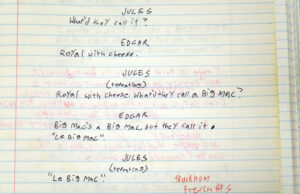 JULES
What'd they call it?
EDGAR
Royal with cheese.
JULES
(repeating)
Royal with cheese. What'd they call a Big Mac?
EDGAR
Big Mac's a Big Mac, but they call it
"Le Big Mac".
JULES
(repeating)
"Le Big Mac."